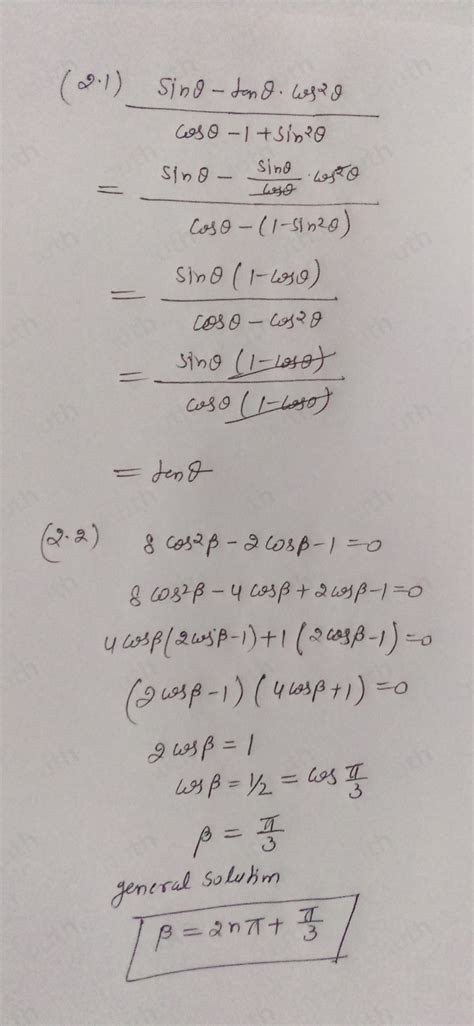 (2.1) sinθ - tanθ · cos²θ
cosθ - 1 + sin²θ
= sinθ - sinθ/cosθ · cos²θ
cosθ - (1 - sin²θ)
= sinθ (1 - cosθ)
cosθ - cos²θ
= sinθ (1 - cosθ)
cosθ (1 - cosθ)
= tanθ
(2.2) 8 cos²β - 2cosβ - 1 = 0
8 cos²β - 4 cosβ + 2cosβ - 1 = 0
4 cosβ (2cosβ - 1) + 1 (2cosβ - 1) = 0
(2cosβ - 1) (4cosβ + 1) = 0
2 cosβ = 1
cosβ = 1/2 = cos π/3
β = π/3
general solution
β = 2nπ + π/3